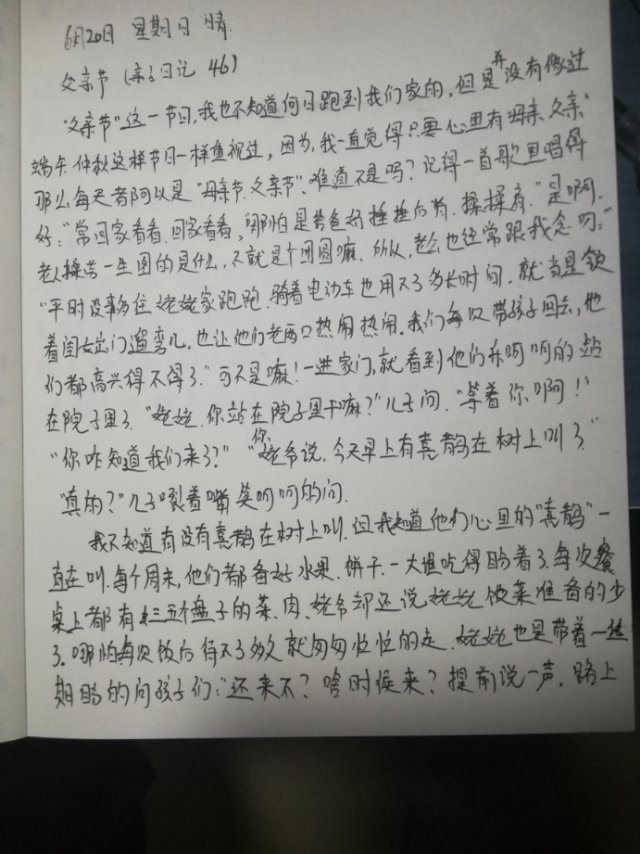 6月20日 星期日 晴
父亲节 (亲子日记 46)
"父亲节"这一节日,我也不知道何日跑到我们家的,但是并没有像过
端午.仲秋这样节日一样重视过,因为,我一直觉得只要心里有母亲.父亲,
那么每天都可以是"母亲节.父亲节",难道不是吗?记得一首歌里唱得
好:"常回家看看.回家看看,哪怕是给爸妈捶捶后背.揉揉肩."是啊.
老人操劳一生图的是什么,不就是个团圆嘛.所以,老公也经常跟我念叨:"
"平时没事多往姥姥家跑跑.骑着电动车也用不了多长时间.就当是领
着闺女出门遛弯儿,也让他们老两口热闹热闹.我们每次带孩子回去,他
们都高兴得不得了."可不是嘛!一进家门,就看到他们乐呵呵的站
在院子里了."姥姥.你站在院子里干嘛?"儿子问."等着你啊!"
"你咋知道我们来了?""你姥爷说,今天早上有喜鹊在树上叫了."
"真的?"儿子咧着嘴笑呵呵的问.
我不知道有没有喜鹊在树上叫.但我知道他们心里的"喜鹊"一
直在叫.每个周末,他们都备好水果.饼干.一大堆吃得盼着了.每次餐
桌上都有三五个盘子的菜、肉、姥爷却还说姥姥饭菜准备的少
了.哪怕每次饭后待不了多久就匆匆忙忙的走.姥姥也是带着一丝
期盼的问孩子们:"还来不?啥时候来?提前说一声.路上